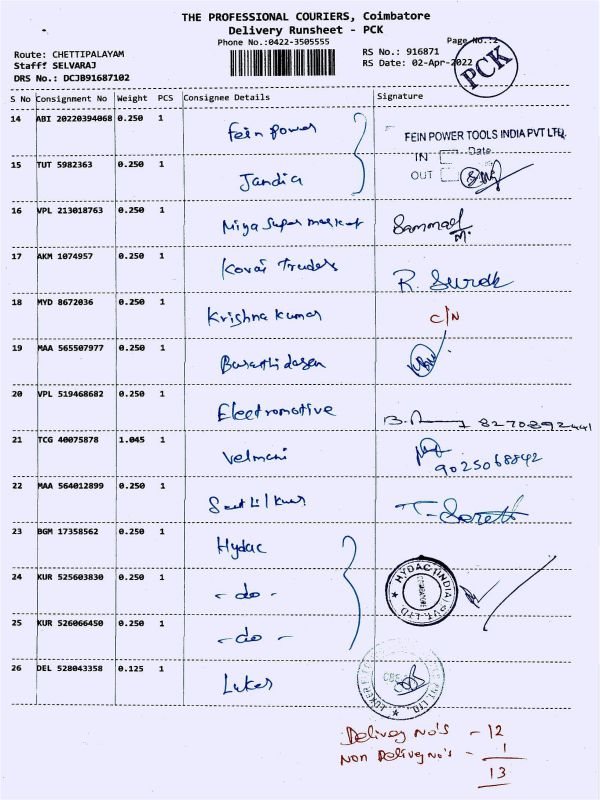 THE PROFESSIONAL COURIERS, Coimbatore
Delivery Runsheet - PCK
Phone No.:0422-3505555
Page No.:2
Route: CHETTIPALAYAM
Staff: SELVARAJ
DRS No.: DCJB91687102
RS No.: 916871
RS Date: 02-Apr-2022
PCK
S No Consignment No Weight PCS Consignee Details Signature
14 ABI 20220394068 0.250 1 Fein power
FEIN POWER TOOLS INDIA PVT LTD.
IN Date
OUT
15 TUT 5982363 0.250 1 Jandia
16 VPL 213018763 0.250 1 Niya Super market
17 AKM 1074957 0.250 1 Kovai Traders R.
18 MYD 8672036 0.250 1 Krishna kumar C/N
19 MAA 565507977 0.250 1 Barathidasan
20 VPL 519468682 0.250 1 Electromotive B.
21 TCG 40075878 1.045 1 Velmani 9025068842
22 MAA 564012899 0.250 1
23 BGM 17358562 0.250 1 Hydac
24 KUR 525603830 0.250 1 - do -
HYDAC (INDIA) PVT. LTD.
COIMBATORE
25 KUR 526066450 0.250 1 - do -
26 DEL 528043358 0.125 1 Luker
Delivey No's - 12
Non Delivey No's - 1
13